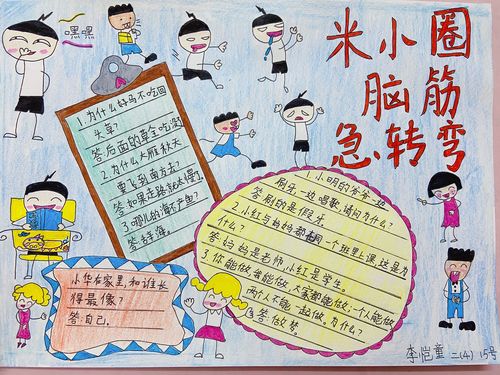 嘿嘿
米小圈
脑筋
急转弯
1.为什么好马不吃回
头草?
答后面的草全吃过
2.为什么大雁秋天
要飞到南方去?
答如果走路就太慢了。
3.哪儿的海不产鱼?
答辞海。
1.小明的爷爷一边
刷牙一边唱歌,请问为什么?
答刷的是假牙。
2.小红与妈妈都在同一个班里上课这是为
什么?
答:妈妈是老师,小红是学生。
3.你能做,我能做,大家都能做,一个人能做
两个人不能一起做,为什么?
答:做梦。
小华在家里,和谁长
得最像?
答:自己。
李恺童 二(4) 15号